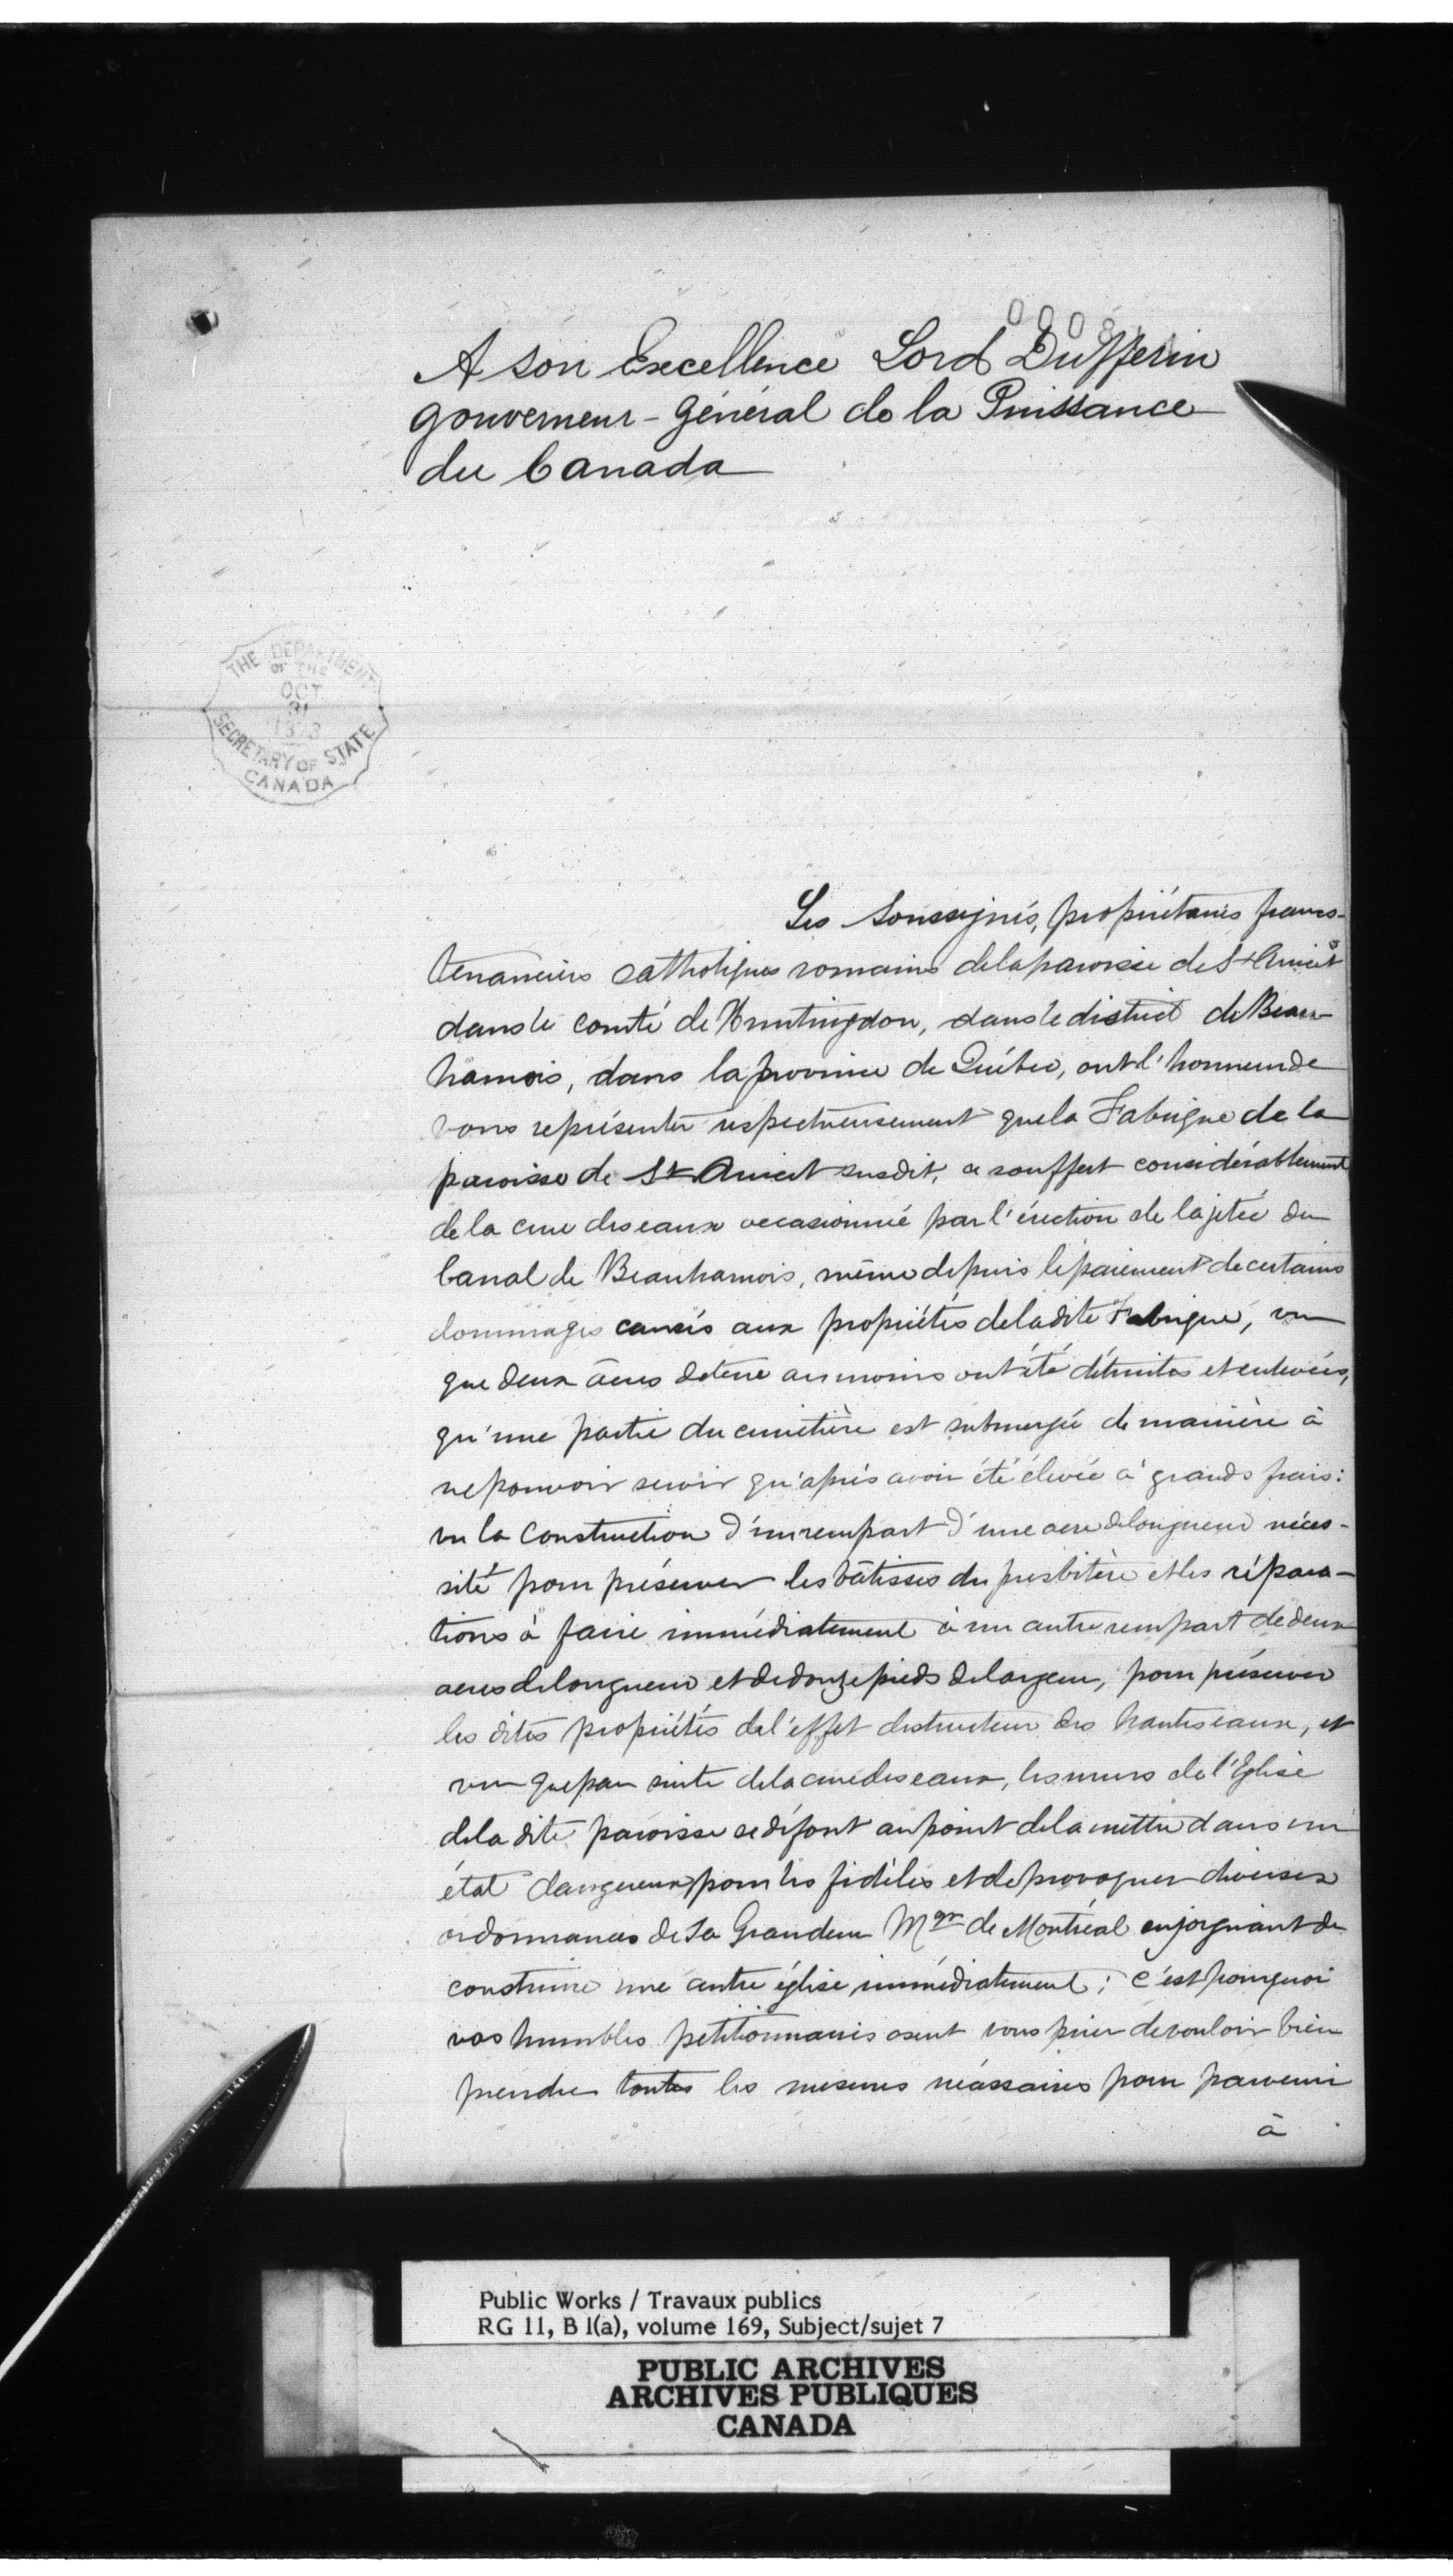 A son Excellence Lord Dufferin
gouverneur-général de la Puissance
du Canada
THE DEPARTMENT
OF THE
OCT
31
SECRETARY OF STATE
CANADA
Les Soussignés, propriétaires francs-
tenanciers catholiques romains de la paroisse de St Anicet
dans le comté de Huntingdon, dans le district de Beau-
harnois, dans la province de Québec, ont l'honneur de
vous représenter respectueusement que la Fabrique de la
paroisse de St Anicet susdit, a souffert considérablement
de la crue des eaux occasionnée par l'érection de la jetée du
Canal de Beauharnois, même depuis le paiement de certains
dommages causés aux propriétés de la dite Fabrique, vu
que deux âcres de terre au moins ont été détruites et enlevées,
qu'une partie du cimetière est submergée de manière à
ne pouvoir servir qu'après avoir été élevée à grands frais:
vu la construction d'un rempart d'une acre de longueur néces-
sité pour préserver les bâtisses du presbitère et les répara-
tions à faire immédiatement à un autre rempart de deux
acres de longueur et de douze pieds de largeur, pour préserver
les dites propriétés de l'effet destructeur des hautes eaux, et
vu que par suite de la crue des eaux, les murs de l'Eglise
de la dite paroisse se défont au point de la mettre dans un
état dangereux pour les fidèles et de provoquer diverses
ordonnances de Sa Grandeur Mgr de Montréal enjoignant de
construire une autre église immédiatement; c'est pourquoi
vos humbles petitionnaires osent vous prier de vouloir bien
prendre toutes les mesures nécessaires pour parvenir
à
Public Works / Travaux publics
RG 11, B 1(a), volume 169, Subject/sujet 7
PUBLIC ARCHIVES
ARCHIVES PUBLIQUES
CANADA